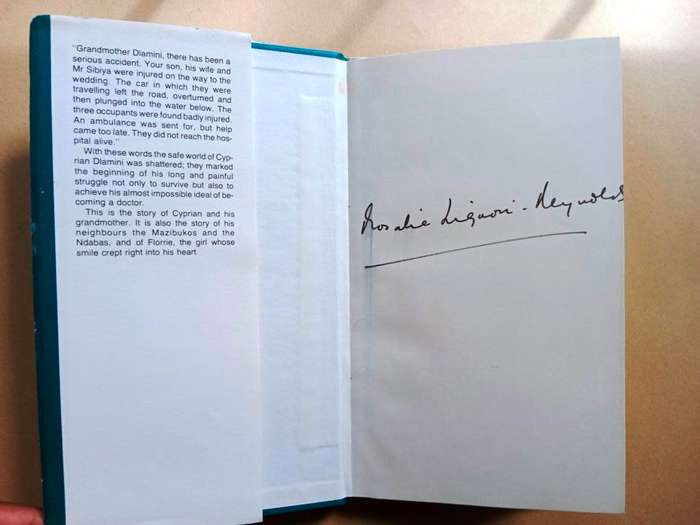 "Grandmother Dlamini, there has been a
serious accident. Your son, his wife and
Mr Sibiya were injured on the way to the
wedding. The car in which they were
travelling left the road, overturned and
then plunged into the water below. The
three occupants were found badly injured.
An ambulance was sent for, but help
came too late. They did not reach the hos-
pital alive."
With these words the safe world of Cyp-
rian Dlamini was shattered; they marked
the beginning of his long and painful
struggle not only to survive but also to
achieve his almost impossible ideal of be-
coming a doctor.
This is the story of Cyprian and his
grandmother. It is also the story of his
neighbours the Mazibukos and the
Ndabas, and of Florrie, the girl whose
smile crept right into his heart.
Rosalie Liguori-Reynolds